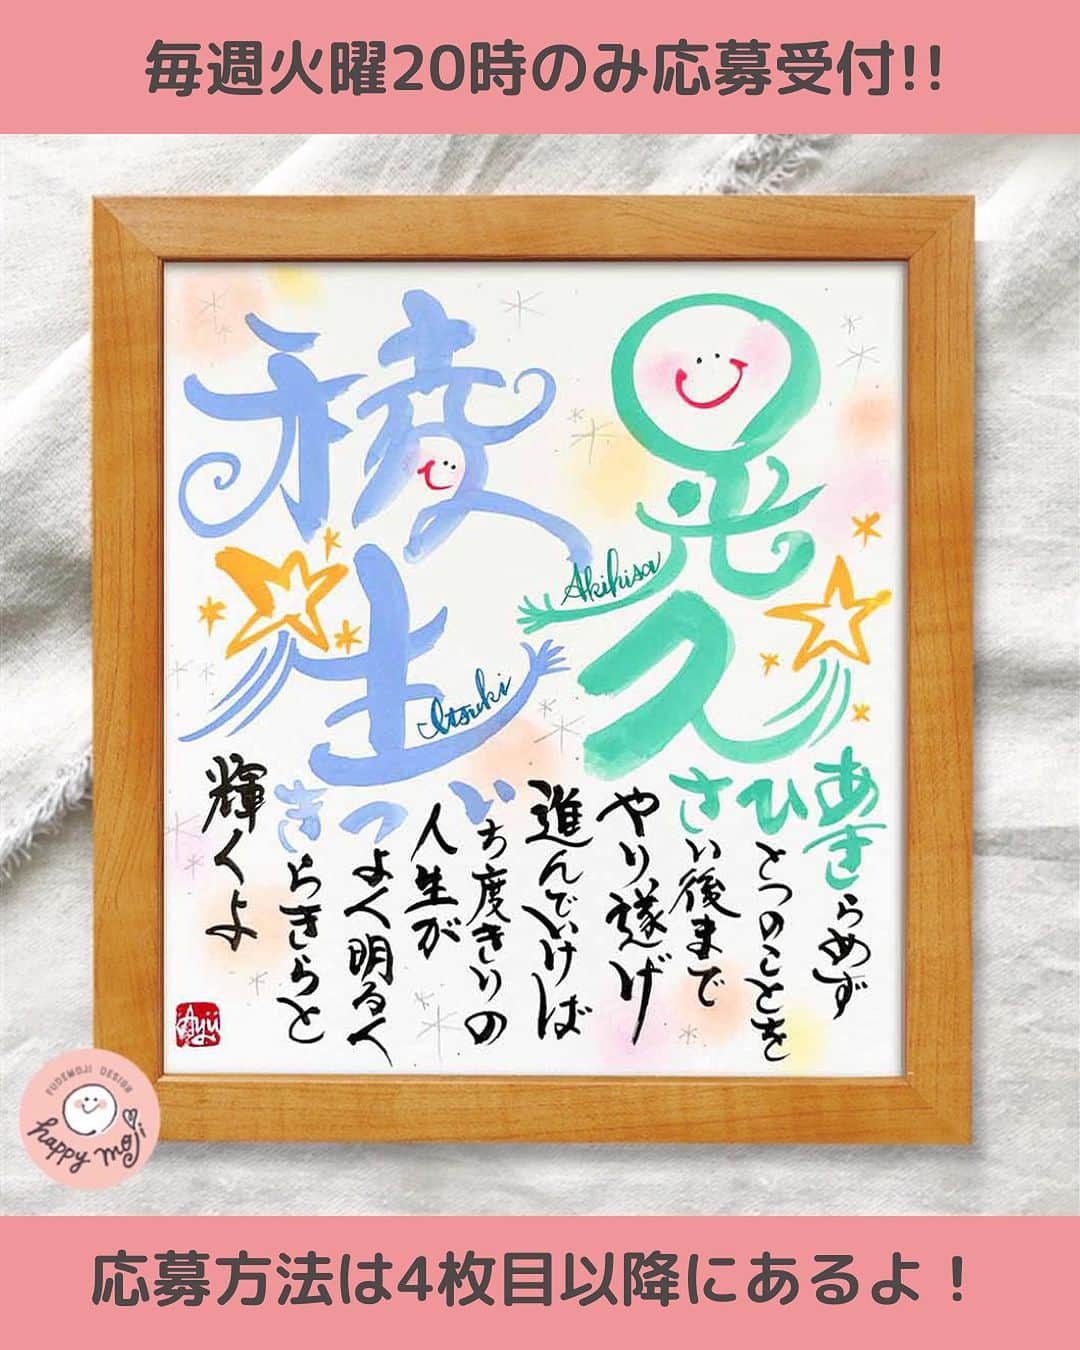 毎週火曜20時のみ応募受付!!
晃久
Akihisa
稜生
Itsuki
あきらめず
ひとつのことを
さい後まで
やり遂げ
進んでいけば
いち度きりの
人生が
つよく明るく
きらきらと
輝くよ
Ayu
FUDEMOJI DESIGN
happy moji
応募方法は4枚目以降にあるよ！